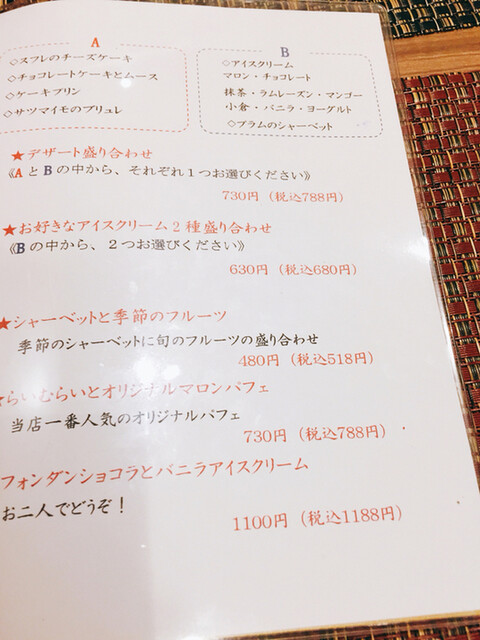 A
◇スフレのチーズケーキ
◇チョコレートケーキとムース
◇ケーキプリン
◇サツマイモのブリュレ
B
◇アイスクリーム
マロン・チョコレート
抹茶・ラムレーズン・マンゴー
小倉・バニラ・ヨーグルト
◇プラムのシャーベット
★デザート盛り合わせ
《AとBの中から、それぞれ１つお選びください》
730円（税込788円）
★お好きなアイスクリーム２種盛り合わせ
《Bの中から、２つお選びください》
630円（税込680円）
★シャーベットと季節のフルーツ
季節のシャーベットに旬のフルーツの盛り合わせ
480円（税込518円）
★らいむらいとオリジナルマロンパフェ
当店一番人気のオリジナルパフェ
730円（税込788円）
フォンダンショコラとバニラアイスクリーム
お二人でどうぞ！
1100円（税込1188円）